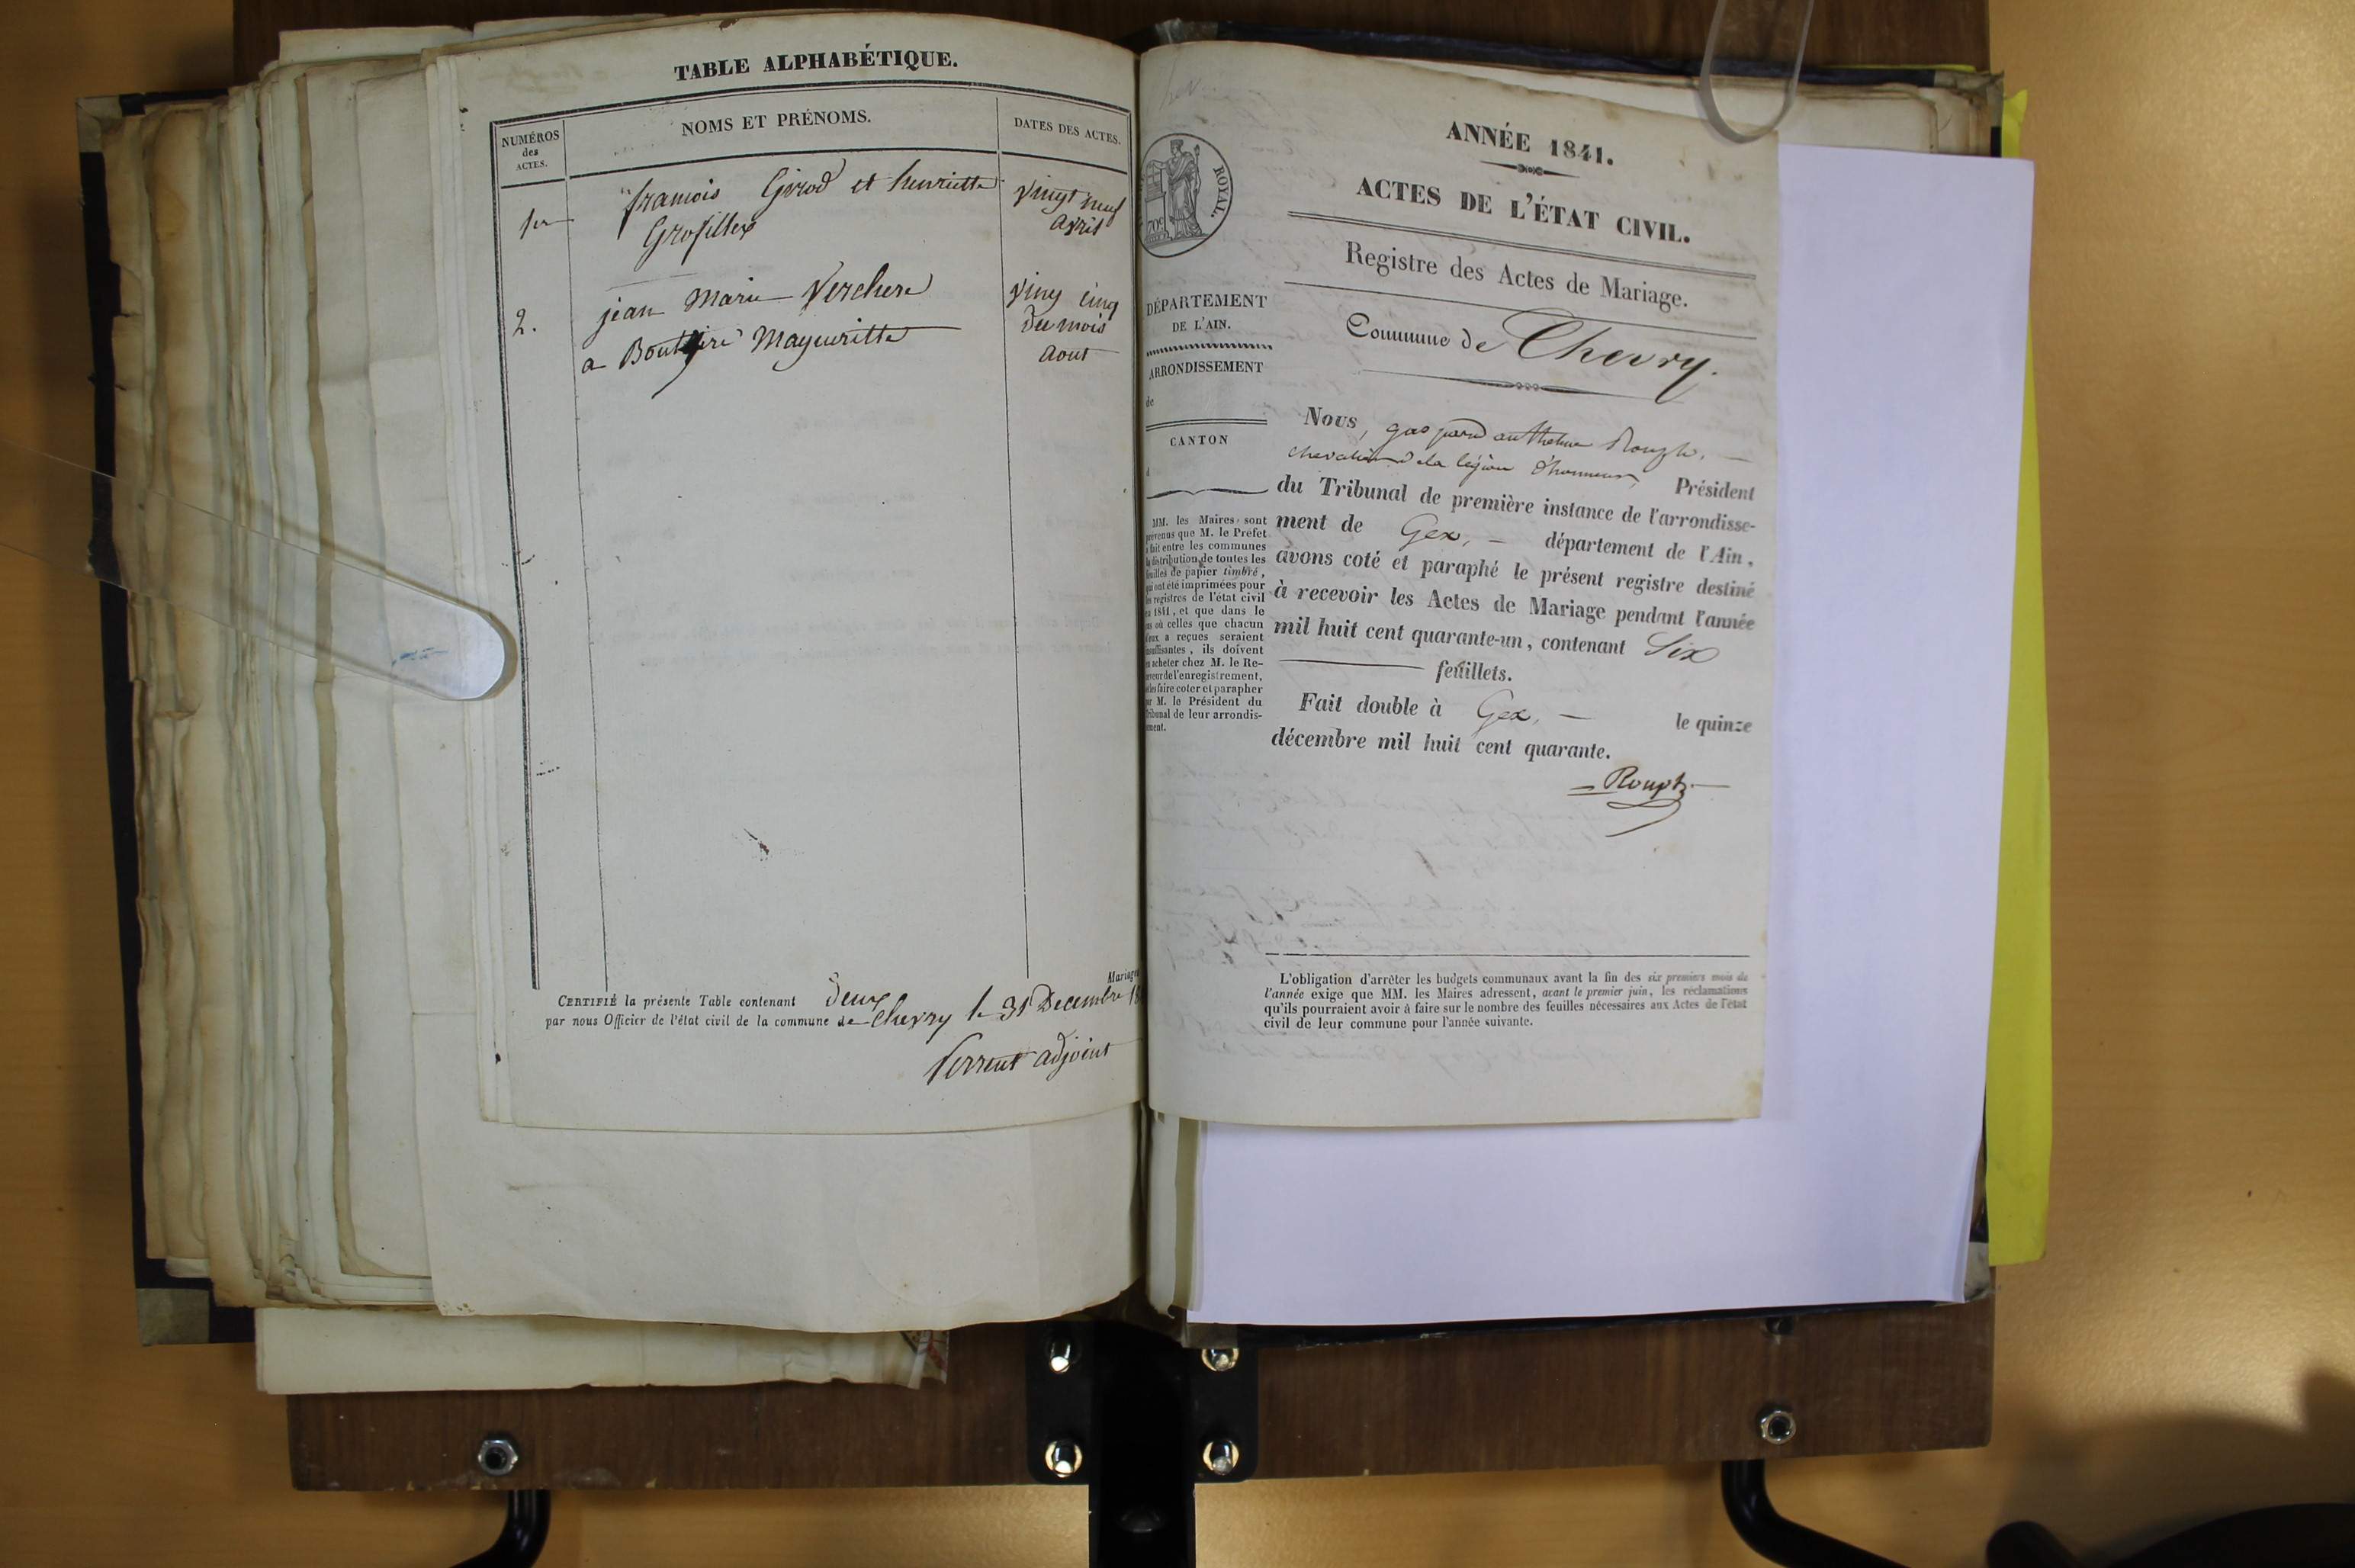 TABLE ALPHABÉTIQUE.
NUMÉROS
des
ACTES.
NOMS ET PRÉNOMS.
DATES DES ACTES.
1er
francois Girod et henriette
Grosfillex
vingt neuf
avril
2.
jean Marie Verchere
a Mayueritte
ving cinq
du mois
aout
CERTIFIÉ la présente Table contenant deux Mariages
par nous Officier de l'état civil de la commune de Chevry le 31 Decembre 18
adjoint
ROYAL.
70c
ANNÉE 1841.
ACTES DE L'ÉTAT CIVIL.
Registre des Actes de Mariage.
Commune de Chevry.
DÉPARTEMENT
DE L'AIN.
ARRONDISSEMENT
de
CANTON
d
MM. les Maires sont
prévenus que M. le Préfet
a fait entre les communes
la distribution de toutes les
feuilles de papier timbré,
qui ont été imprimées pour
les registres de l'état civil
en 1841, et que dans le
cas où celles que chacun
d'eux a reçues seraient
insuffisantes, ils doivent
en acheter chez M. le Re-
ceveur de l'enregistrement,
et les faire coter et parapher
par M. le Président du
Tribunal de leur arrondis-
sement.
Nous, gaspard anthelme Rouph,
chevalier de la légion d'honneur, Président
du Tribunal de première instance de l'arrondisse-
ment de Gex, département de l'Ain,
avons coté et paraphé le présent registre destiné
à recevoir les Actes de Mariage pendant l'année
mil huit cent quarante-un, contenant Six
feuillets.
Fait double à Gex, le quinze
décembre mil huit cent quarante.
Rouph
L'obligation d'arrêter les budgets communaux avant la fin des six premiers mois de
l'année exige que MM. les Maires adressent, avant le premier juin, les réclamations
qu'ils pourraient avoir à faire sur le nombre des feuilles nécessaires aux Actes de l'état
civil de leur commune pour l'année suivante.